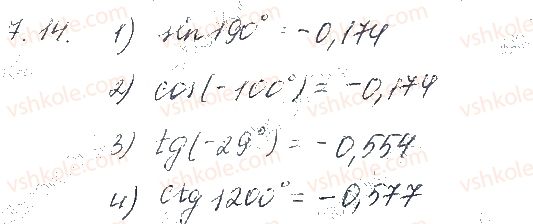 7.14. 1) sin 190° = -0,174
2) cos(-100°) = -0,174
3) tg(-29°) = -0,554
4) ctg 1200° = -0,577
vshkole.com